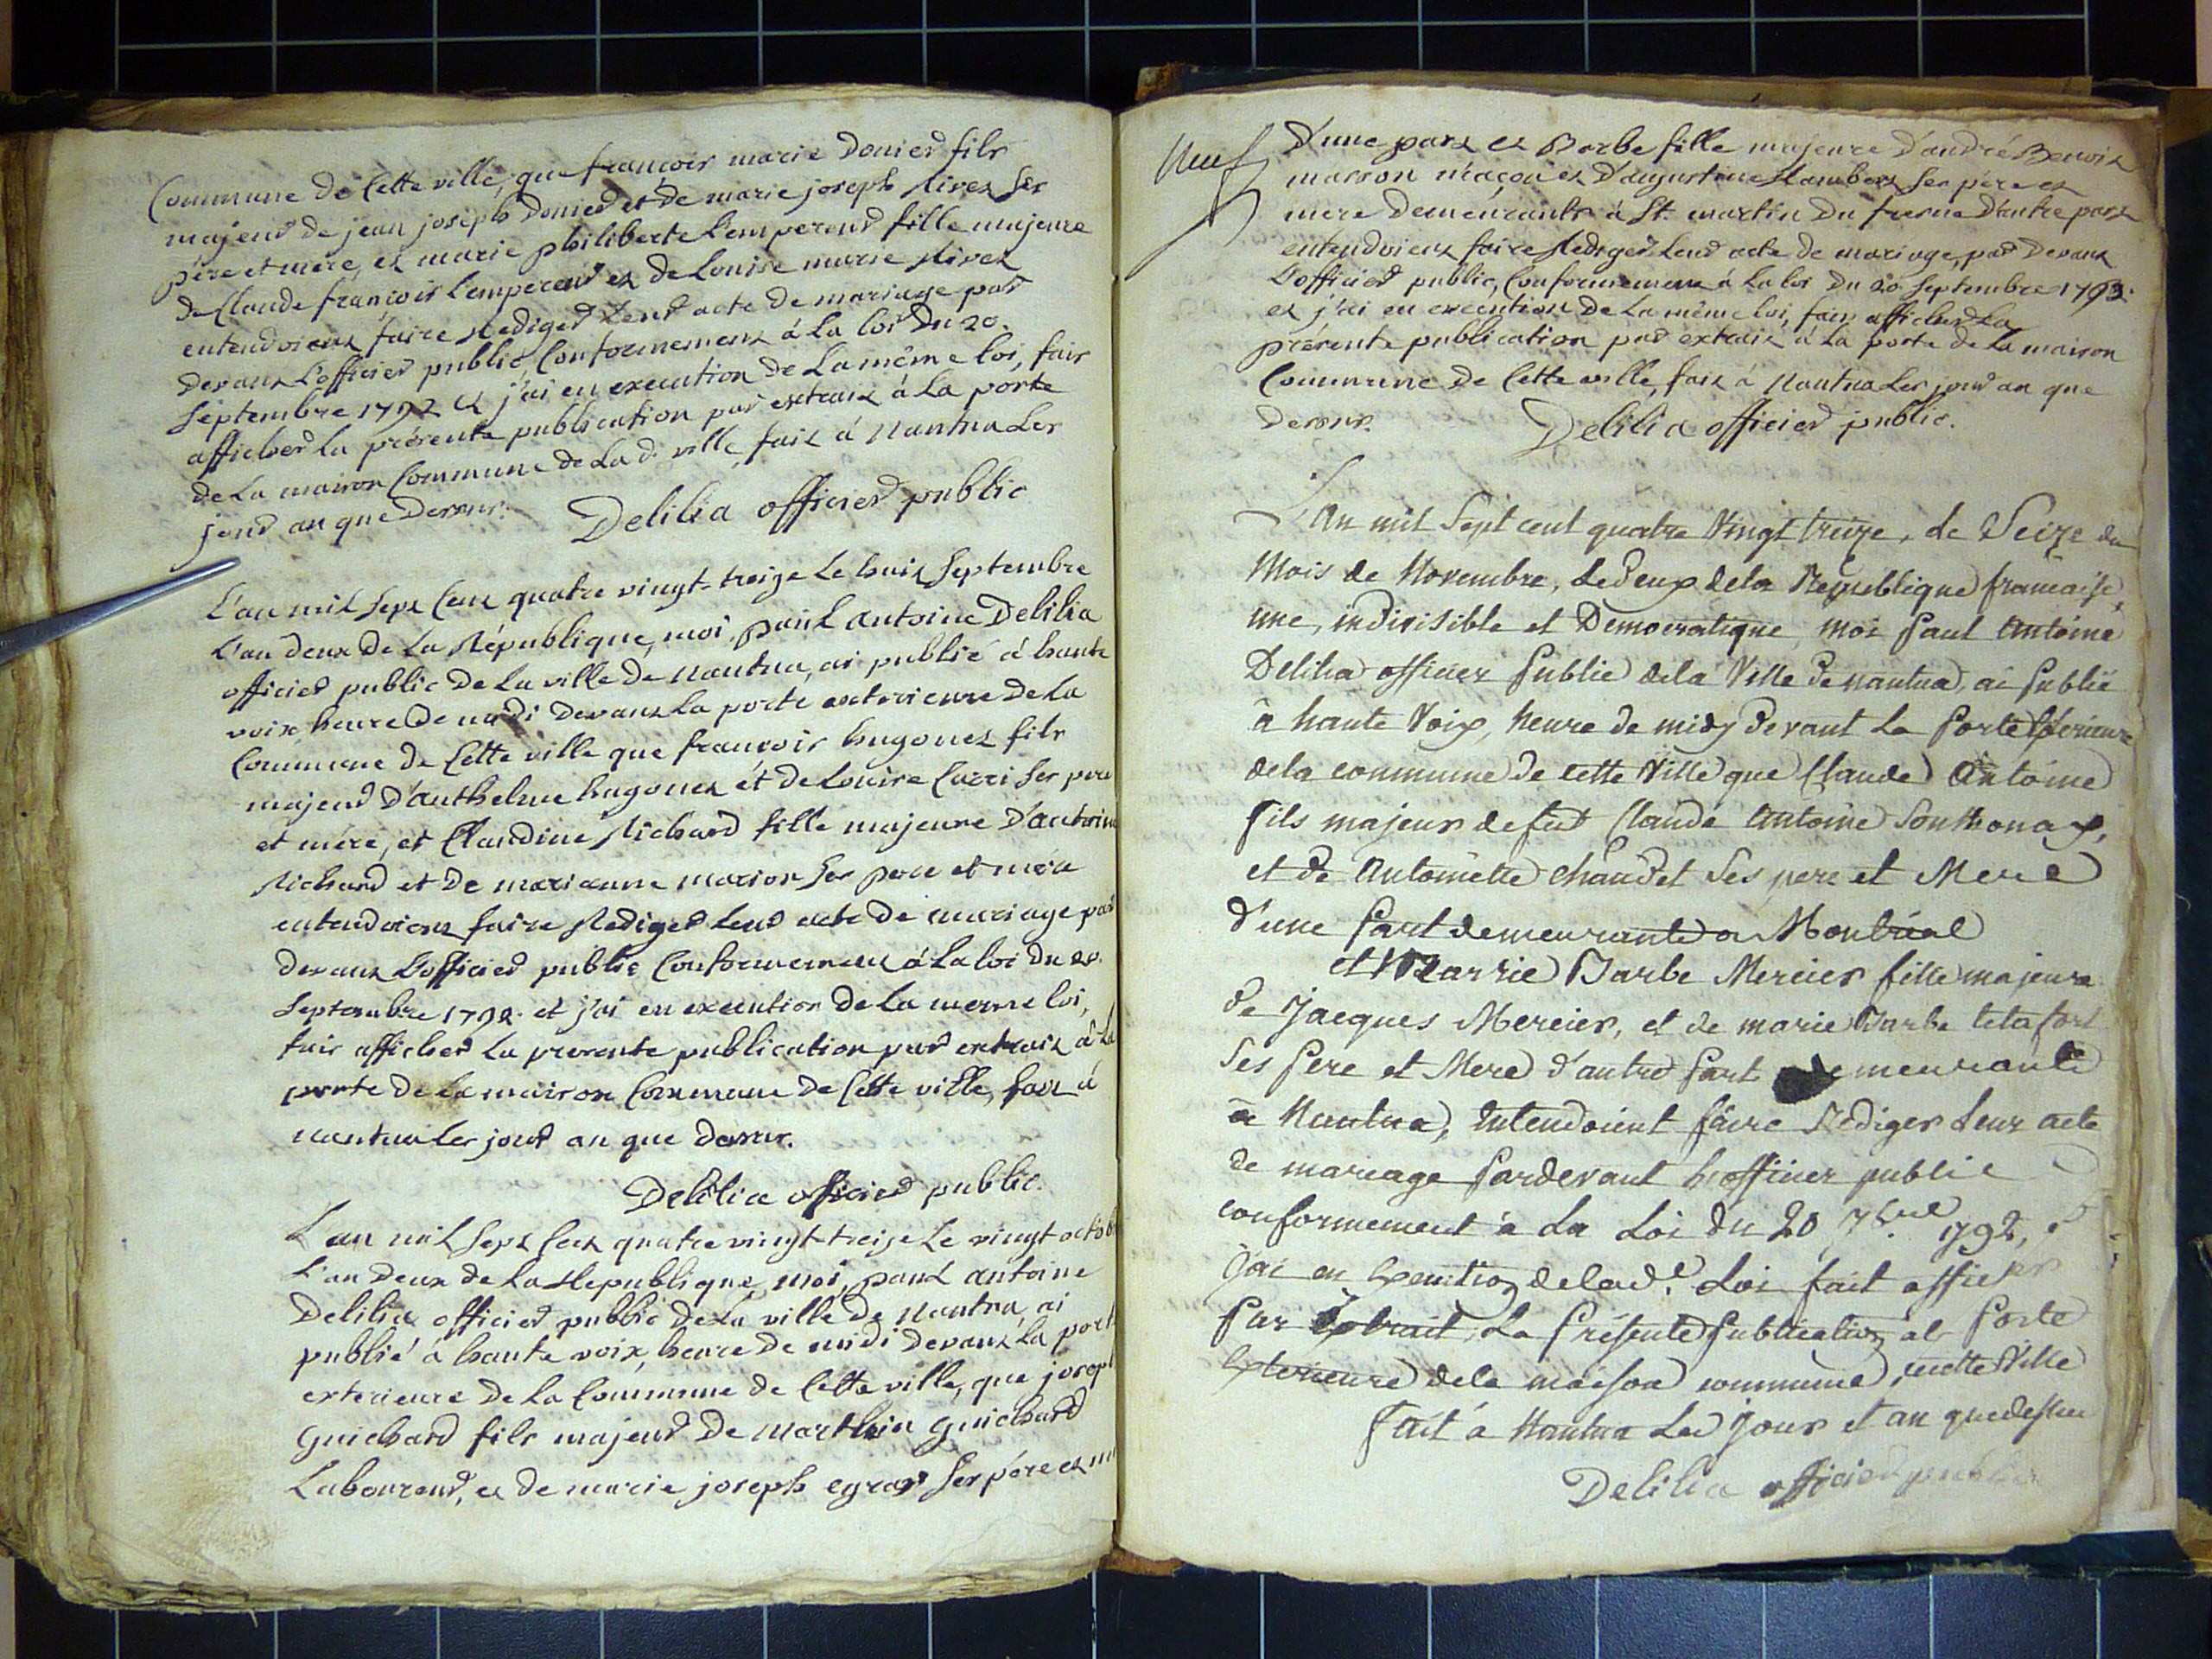 Commune de Cette ville, que françois marie Donier fils
majeur de jean joseph Donier et de marie joseph Rivet Ses
père et mère, et marie philiberte Lempereur fille majeure
de Claude françois Lempereur et de Louise marie Rivet
entendoient faire Rediger Leur acte de mariage par
devant L'officier public, Conformement à La loi du 20.
Septembre 1792 et j'ai en execution de La même loi, fait
afficher La présente publication par extrait à La porte
de La maison Commune de La d. ville, fait à Nantua Les
jour an que Dessus.
Delilia officier public
L'an mil Sept Cent quatre vingt-treize Le huit Septembre
L'an deux de La République, moi, paul antoine Delilia
officier public de La ville de Nantua, ai publié à haute
voix heure de midi devant La porte exterieure de La
Commune de Cette ville que françois hugonet fils
majeur d'anthelme hugonet et de Louise Ses père
et mère, et Claudine Richard fille majeure d'antoine
Richard et de marianne marion Ses père et mère
entendoient faire Rediger Leur acte de mariage par
devant L'officier public Conformement à La loi du 20.
Septembre 1792. et j'ai en execution de La meme loi,
fait afficher La presente publication par extrait à La
porte de La maison Commune de Cette ville, fait à
nantua Les jour an que dessus.
Delilia officier public.
L'an mil Sept Cent quatre vingt-treize Le vingt octob
L'an Deux de La Republique, moi, paul antoine
Delilia officier public de La ville de Nantua, ai
publié à haute voix, heure de midi devant La port
exterieure de La Commune de Cette ville, que joseph
Guichard fils majeur de Marthin Guichard
Laboureur, et de marie joseph egraz Ses père et m
Neuf
D'une part et Barbe fille majeure d'andré Benoit
masson maçon et d'augustine Ses père et
mere Demeurants à St. martin Du fresne D'autre part
entendoient faire Rediger Leur acte de mariage, par Devant
L'officier public, Conformement à La loi Du 20 Septembre 1793.
et j'ai en execution De La même loi, fait afficher La
présente publication par extrait à La porte de La maison
Commune de Cette ville, fait à Nantua Les jour an que
Dessus. Delilia officier public.
L'An mil Sept cent quatre Vingt treize, le Seize du
Mois de Novembre, L'Deux dela Republique francaise,
une, indivisible et Democratique, moi Paul Antoine
Delilia officier Public dela Ville de nantua, ai Publié
à haute Voix, heure de midy devant La Porte Exterieure
dela commune de cette Ville que Claude Antoine
fils majeur de feut Claude Antoine Sonthonax,
et de Antoinette chaudet Ses pere et Mere
d'une Part demeurante a Montréal
et Marrie Barbe Mercier fille majeure
de Jacques Mercier, et de marie Barbe
Ses Pere et Mere d'autre Part demeurante
à Nantua, entendoient faire Rédiger Leur acte
de mariage Pardevant L'officier public
conformement à La Loi du 20 7bre 1792, et
j'ai en Execution delad.e Loi fait afficher
Par Extrait, La Présente Publication à la Porte
Exterieure dela maison commune, cette Ville
fait à Nantua Les jour et an quedessus
Delilia officier public